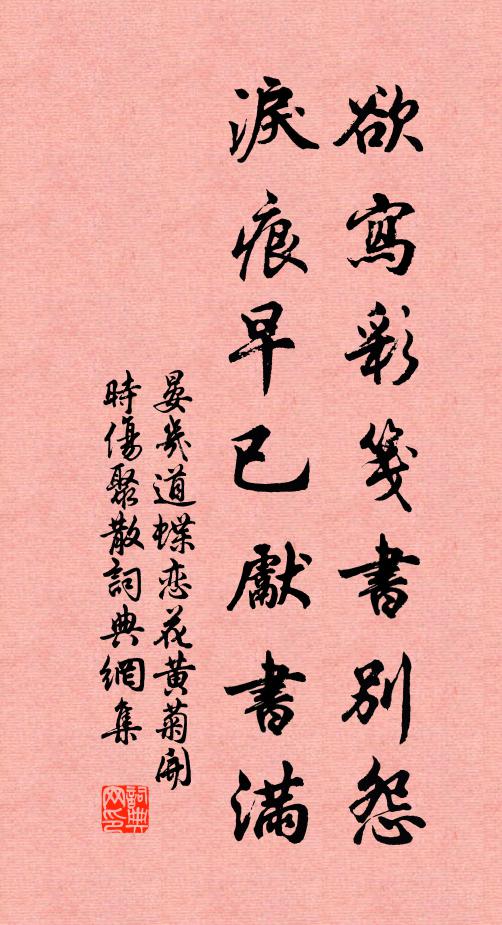 欲寫彩箋書別怨
淚痕早已獻書滿
晏幾道蝶恋花黄菊開
時傷聚散詞典網集
詞典網印